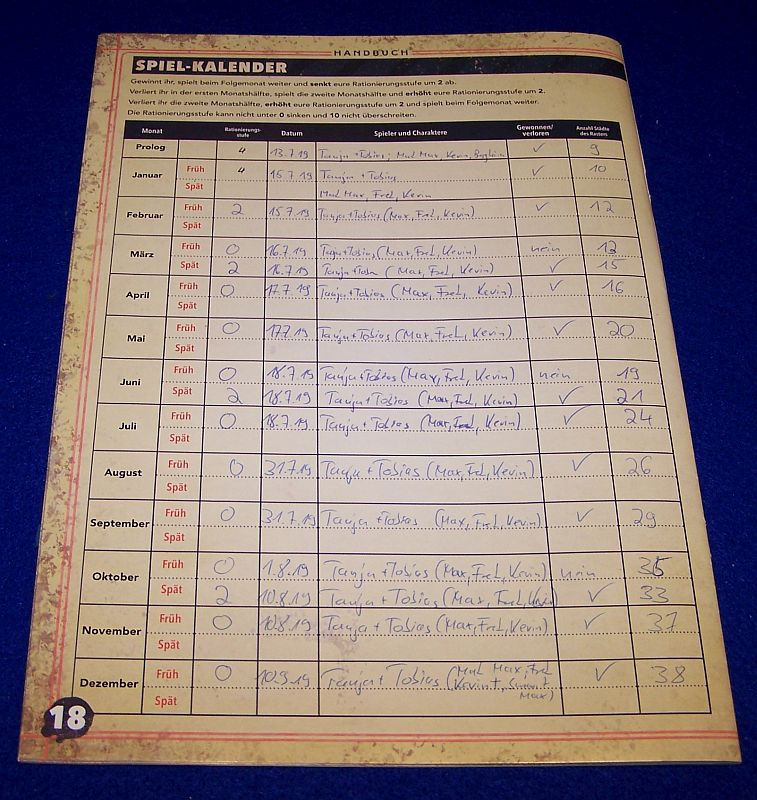 HANDBUCH
SPIEL-KALENDER
Gewinnt ihr, spielt beim Folgemonat weiter und senkt eure Rationierungsstufe um 2 ab.
Verliert ihr in der ersten Monatshälfte, spielt die zweite Monatshälfte und erhöht eure Rationierungsstufe um 2.
Verliert ihr die zweite Monatshälfte, erhöht eure Rationierungsstufe um 2 und spielt beim Folgemonat weiter.
Die Rationierungsstufe kann nicht unter 0 sinken und 10 nicht überschreiten.
Monat Rationierungs-stufe Datum Spieler und Charaktere Gewonnen/verloren Anzahl Städte des Rasters
Prolog 4 13.7.19 Tanja + Tobias; Mad Max, Kevin, ✓ 9
Januar Früh 4 15.7.19 Tanja + Tobias ✓ 10
Spät Mad Max, Fred, Kevin
Februar Früh 2 15.7.19 Tanja + Tobias (Max, Fred, Kevin) ✓ 12
Spät
März Früh 0 16.7.19 Tanja + Tobias (Max, Fred, Kevin) nein 12
Spät 2 16.7.19 Tanja + Tobias (Max, Fred, Kevin) ✓ 15
April Früh 0 17.7.19 Tanja + Tobias (Max, Fred, Kevin) ✓ 16
Spät
Mai Früh 0 17.7.19 Tanja + Tobias (Max, Fred, Kevin) ✓ 20
Spät
Juni Früh 0 18.7.19 Tanja + Tobias (Max, Fred, Kevin) nein 19
Spät 2 18.7.19 Tanja + Tobias (Max, Fred, Kevin) ✓ 21
Juli Früh 0 18.7.19 Tanja + Tobias (Max, Fred, Kevin) ✓ 24
Spät
August Früh 0 31.7.19 Tanja + Tobias (Max, Fred, Kevin) ✓ 26
Spät
September Früh 0 31.7.19 Tanja + Tobias (Max, Fred, Kevin) ✓ 29
Spät
Oktober Früh 0 1.8.19 Tanja + Tobias (Max, Fred, Kevin) nein
Spät 2 10.8.19 Tanja + Tobias (Max, Fred, Kevin) ✓ 33
November Früh 0 10.8.19 Tanja + Tobias (Max, Fred, Kevin) ✓ 37
Spät
Dezember Früh 0 10.9.19 Tanja + Tobias (Mad Max, Fred ✓ 38
Kevin †,
Spät Max)
18